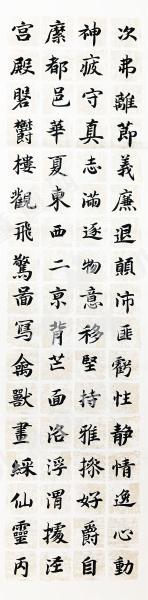 次弗離節義廉退顛沛匪虧性静情逸心動
神疲守真志滿逐物意移堅持雅操好爵自
縻都邑華夏東西二京背芒面洛浮渭據涇
宮殿磐欝樓觀飛驚啚寫禽獸畫綵仙靈丙